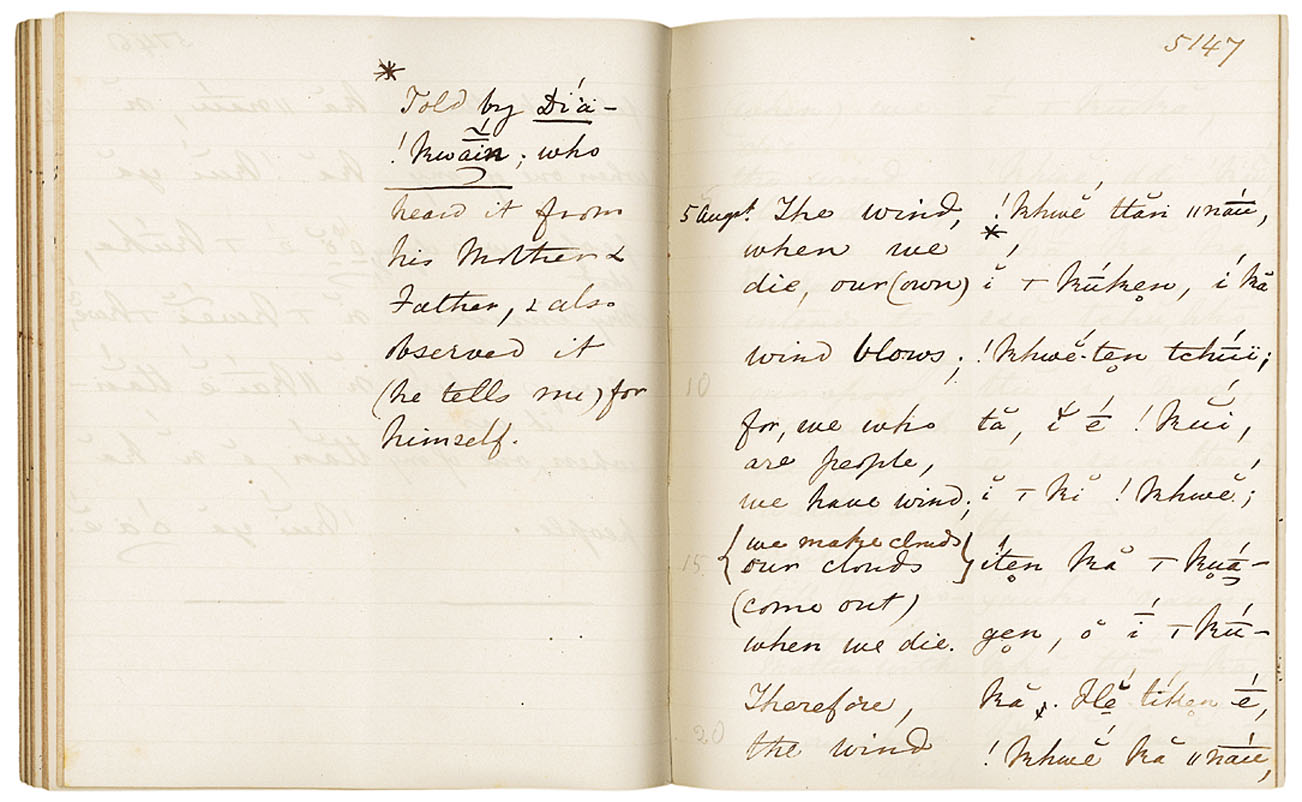 *
Told by Día-
!kwāin; who
heard it from
his Mother &
Father, & also
observed it
(he tells me) for
himself.
5147
5 Augst. The wind, !khwĕ́ ttăń ǁnāú,
when we *
die, our (own) ĭ́ ⊤ kū́kẹn, í kă
wind blows; !khwĕ́-tẹn tchū́ï;
10
for, we who tă, ĭ́ ḗ !kŭí,
are people,
we have wind; ĭ ⊤ kĭ !khwĕ́;
{we make clouds
15 our clouds} ítẹn kă ⊤ kụā́-
(come out)
when we die. gẹn, ŏ ī́ ⊤ kū́-
Therefore, kă,. Hĕ́ tíkẹn ḗ,
20 the wind !khwĕ́ kă ǁnāú,